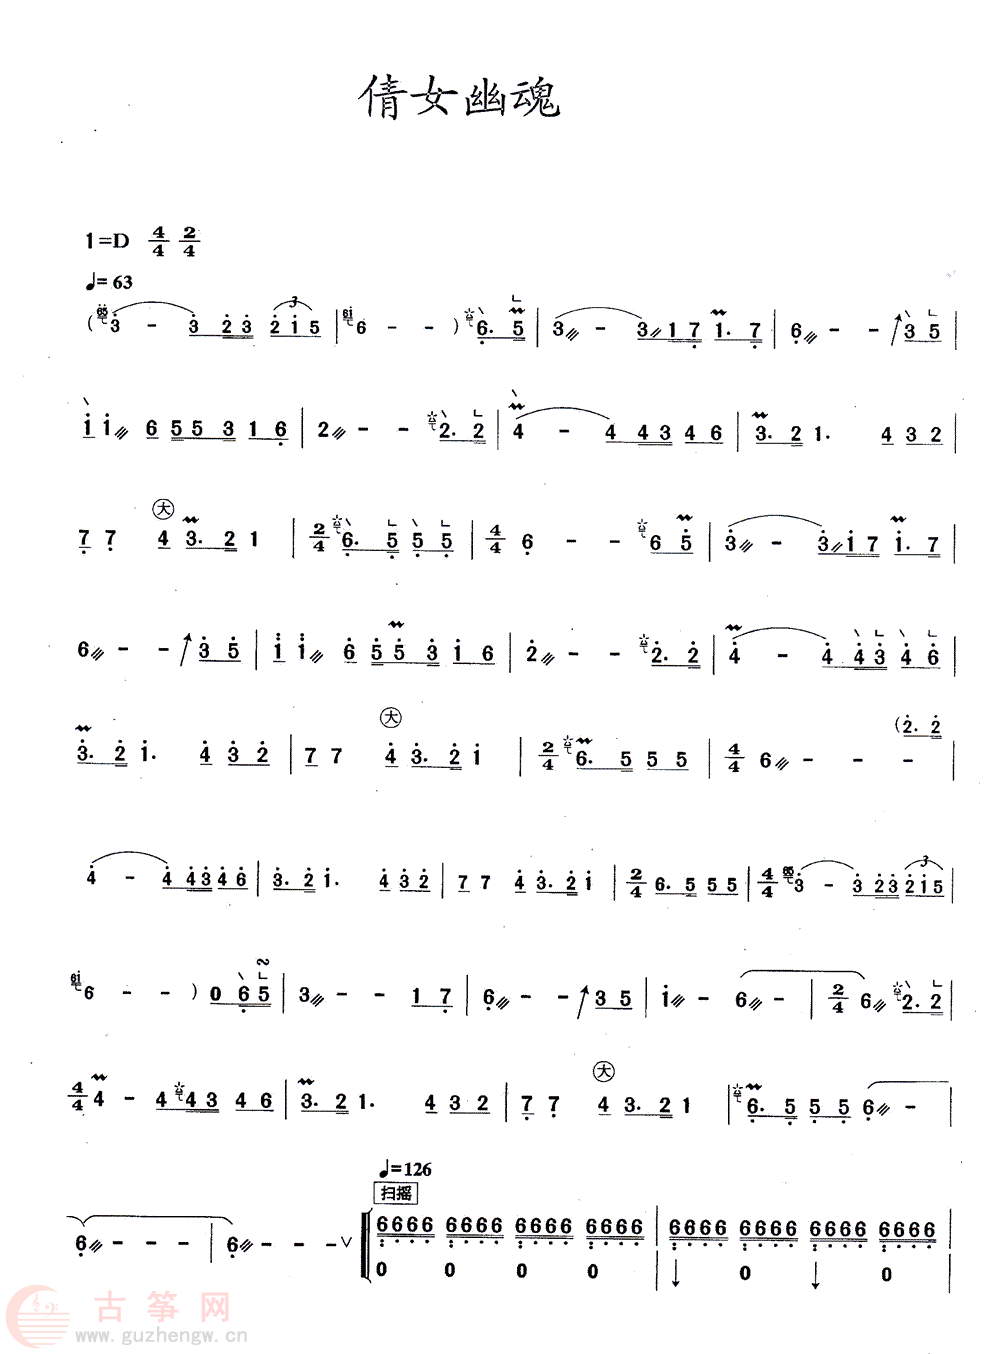 倩女幽魂
1=D 4/4 2/4
♩= 63
( 65 3 - 3 2 3 2 1 5 | 61 6 - - ) 6. 5 | 3 - 3 1 7 1. 7 | 6 - - 3 5 |
1 1 6 5 5 3 1 6 | 2 - - 2. 2 | 4 - 4 4 3 4 6 | 3. 2 1. 4 3 2 |
7 7 大 4 3. 2 1 | 2/4 6. 5 5 5 | 4/4 6 - - 6 5 | 3 - 3 1 7 1. 7 |
6 - - 3 5 | 1 1 6 5 5 3 1 6 | 2 - - 2. 2 | 4 - 4 4 3 4 6 |
3. 2 1. 4 3 2 | 7 7 大 4 3. 2 1 | 2/4 6. 5 5 5 | 4/4 6 - - - (2. 2 |
4 - 4 4 3 4 6 | 3. 2 1. 4 3 2 | 7 7 4 3. 2 1 | 2/4 6. 5 5 5 | 4/4 65 3 - 3 2 3 2 1 5 |
61 6 - - ) 0 6 5 | 3 - - 1 7 | 6 - - 3 5 | 1 - 6 - | 2/4 6 2. 2 |
4/4 4 - 4 4 3 4 6 | 3. 2 1. 4 3 2 | 7 7 大 4 3. 2 1 | 6. 5 5 5 6 - |
6 - - - | 6 - - - ∨
♩=126
扫摇
6666 6666 6666 6666 | 6666 6666 6666 6666 |
0 0 0 0 | ↓ 0 ↓ 0 |
古筝网
www.guzhengw.cn